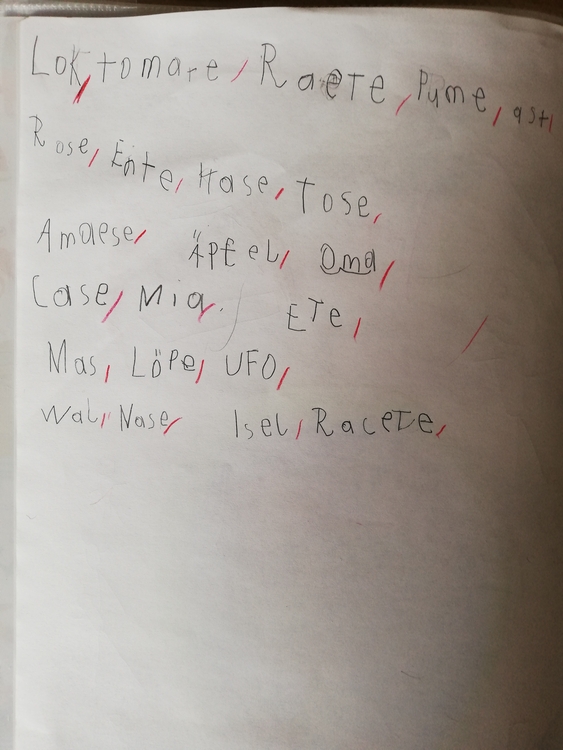 Lok, tomare, Raete, Pume, ast,
Rose, Ente, Hase, Tose,
Amaese, Äpfel, Oma,
Case, Mia, ETe,
Mas, Löpe, UFO,
Wal, Nase, Isel, Racete,